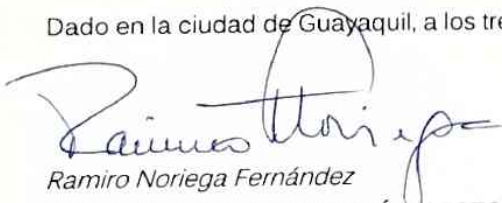 Dado en la ciudad de Guayaquil, a los tre
Ramiro Noriega
Ramiro Noriega Fernández